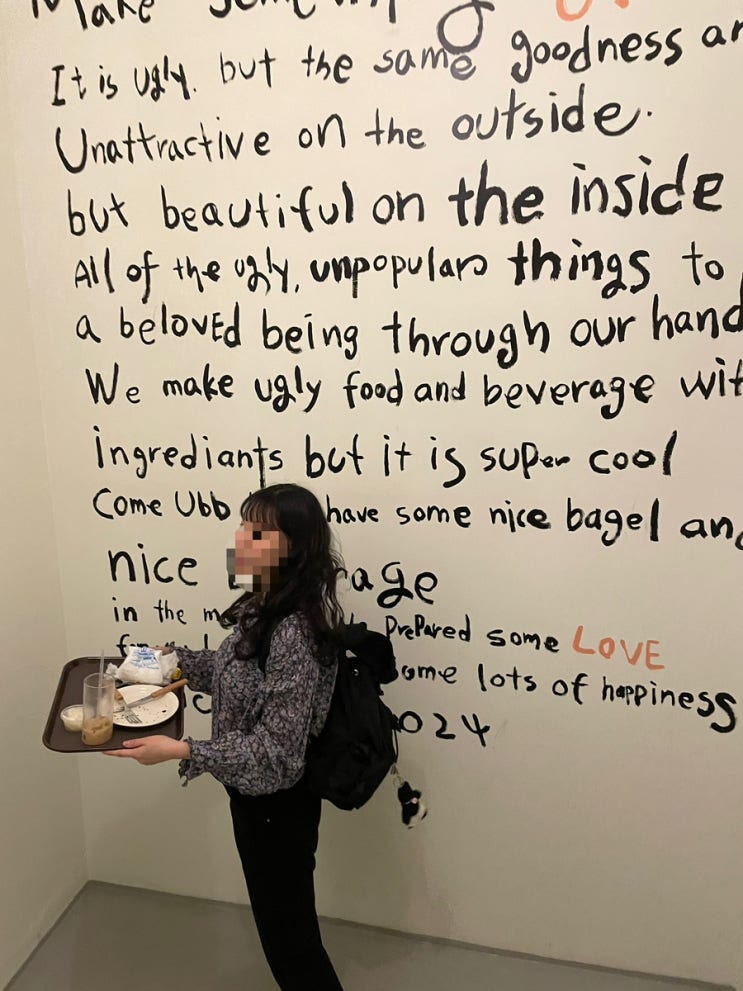 Make
It is ugly. but the same goodness
Unattractive on the outside.
but beautiful on the inside
All of the ugly, unpopular things to
a beloved being through our
We make ugly food and beverage
ingrediants but it is super cool
Come Ubb have some nice bagel
nice
in the Prepared some LOVE
lots of happiness